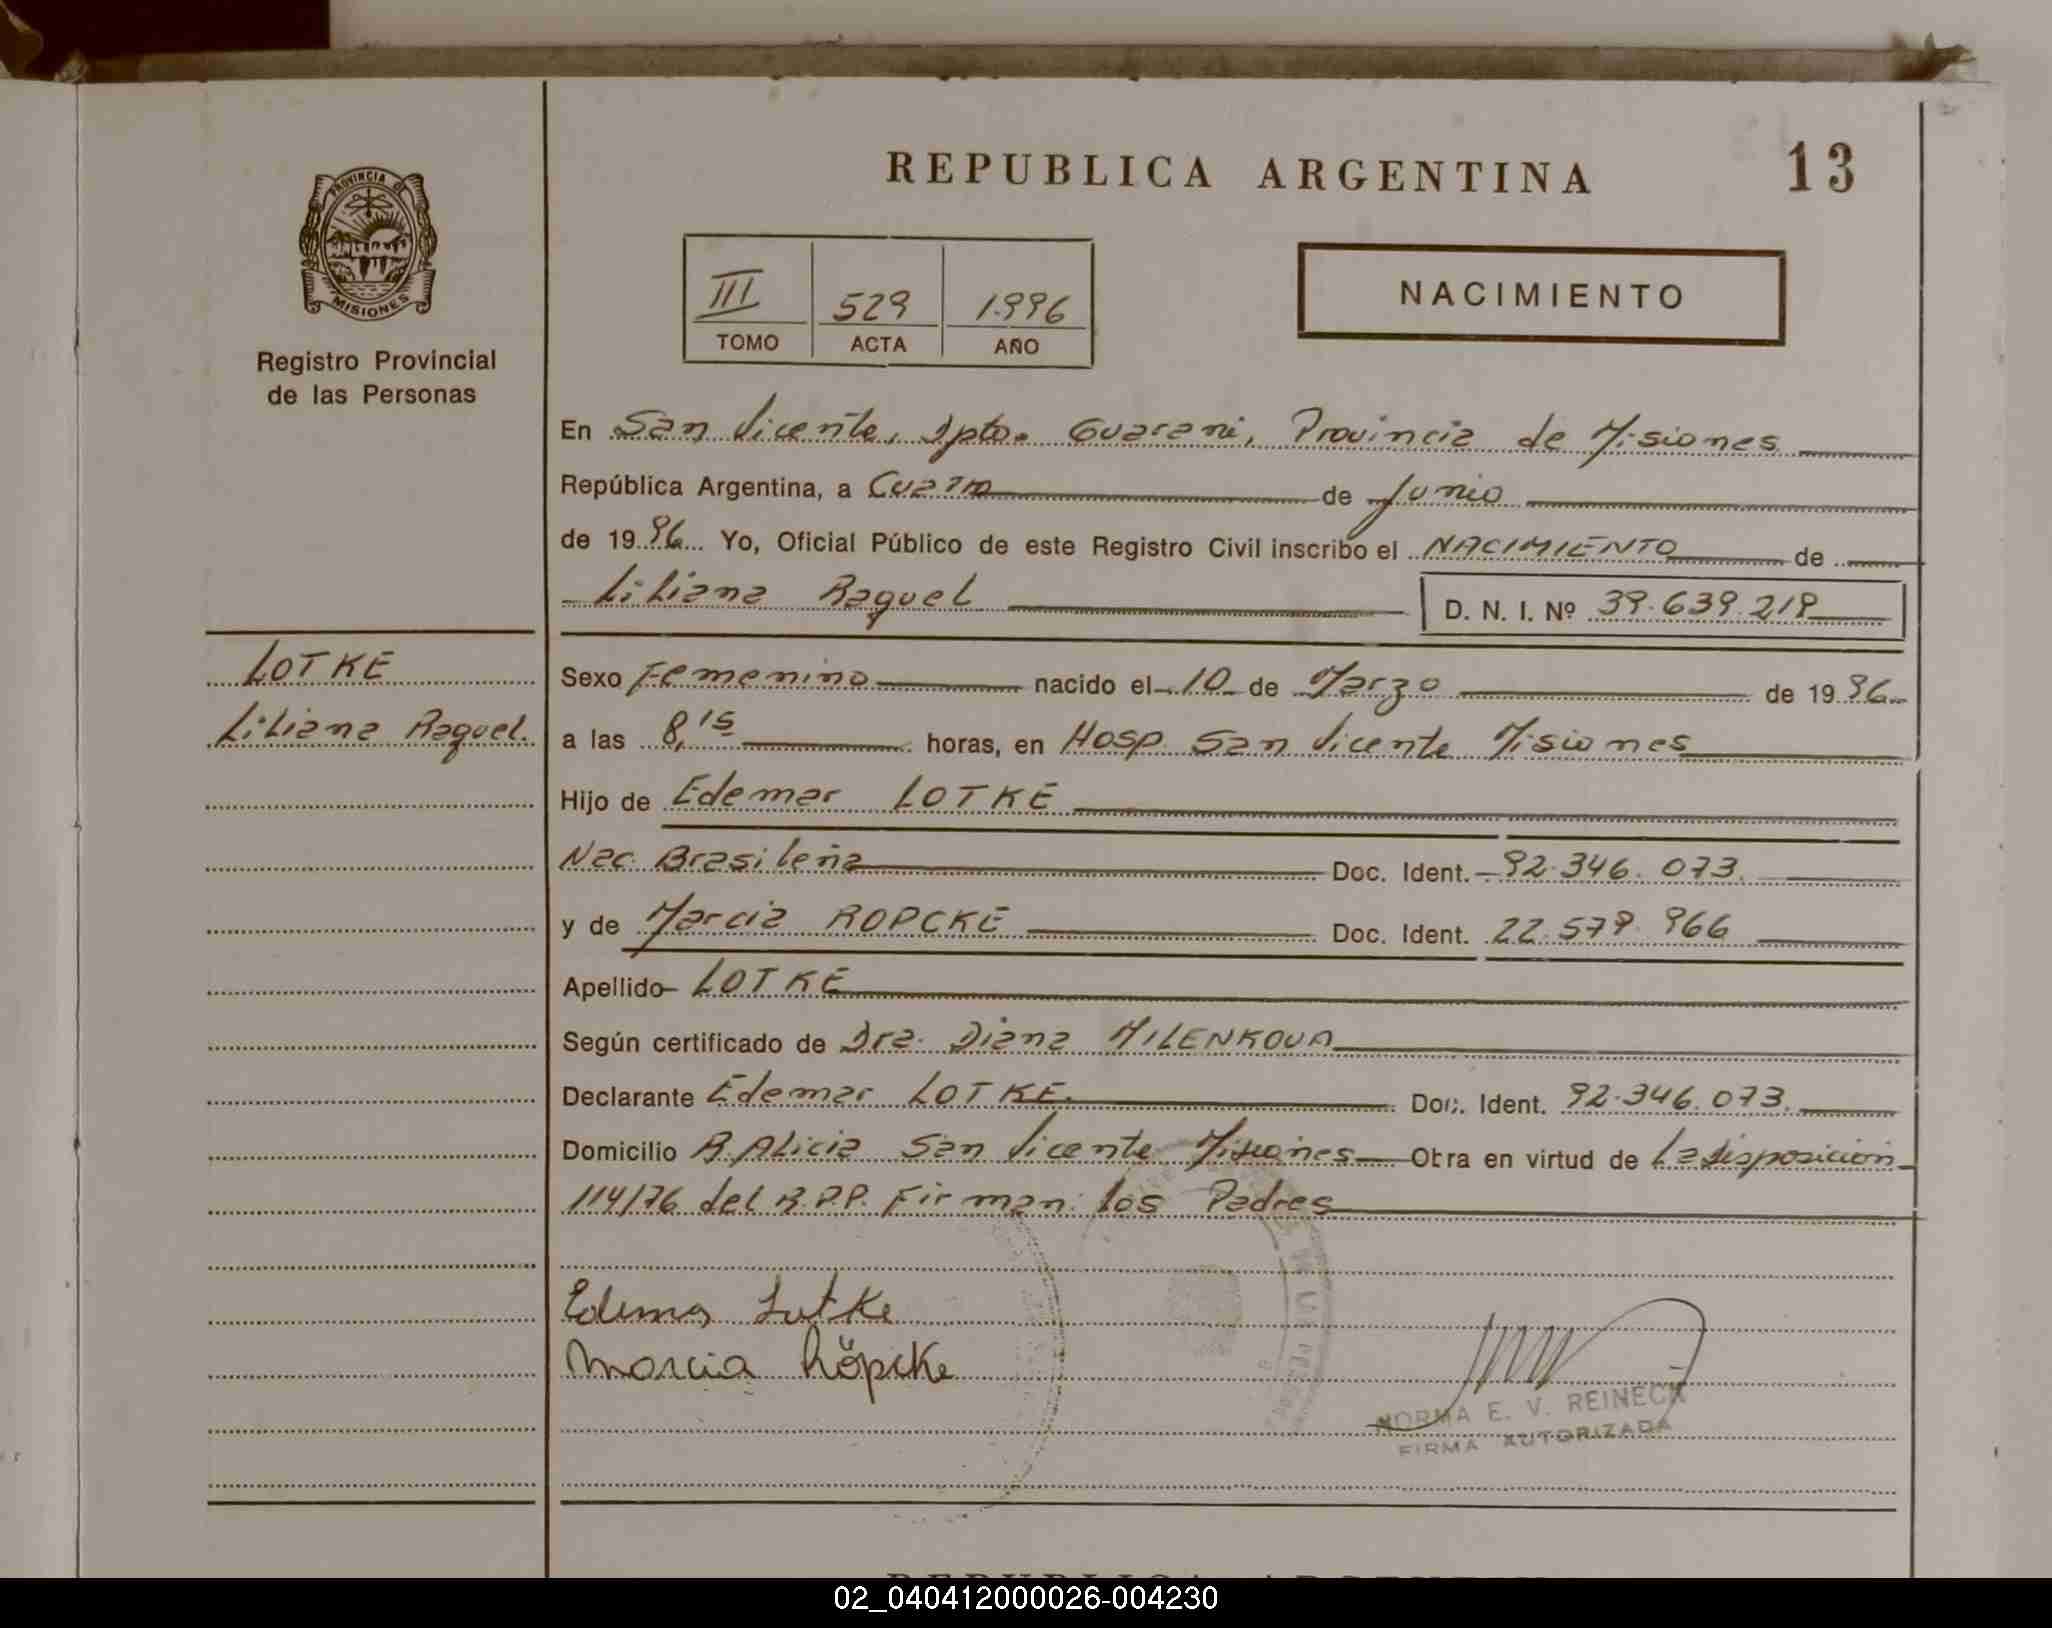 REPUBLICA ARGENTINA
13
PROVINCIA DE
MISIONES
Registro Provincial
de las Personas
III 529 1.996
TOMO ACTA AÑO
NACIMIENTO
En San Vicente, Dpto. Guarani, Provincia de Misiones
República Argentina, a Cuatro de Junio
de 1996 Yo, Oficial Público de este Registro Civil inscribo el NACIMIENTO de
Liliana Raquel D. N. I. Nº 39.639.219
LOTKE
Liliana Raquel.
Sexo Femenino nacido el 10 de Marzo de 1996
a las 8,15 horas, en Hosp. San Vicente Misiones
Hijo de Edemar LOTKE
Nac. Brasileña Doc. Ident. 92.346.073.
y de Marcia ROPCKE Doc. Ident. 22.579.966
Apellido LOTKE
Según certificado de Dra. Diana MILENKOVA
Declarante Edemar LOTKE. Doc. Ident. 92.346.073.
Domicilio B. Alicia San Vicente Misiones Otra en virtud de La disposicion
114/76 del R.P.P. Firman: los Padres
Edemar Lutke
Marcia Röpcke
NORMA E. V. REINECK
FIRMA AUTORIZADA
02_040412000026-004230